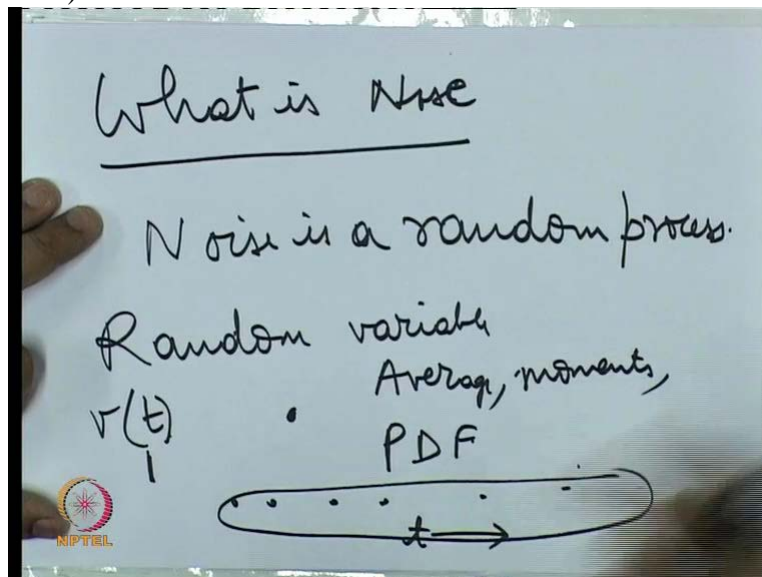 What is Noise
Noise is a random process.
Random variable
Average, moments,
v(t)
PDF
t
NPTEL